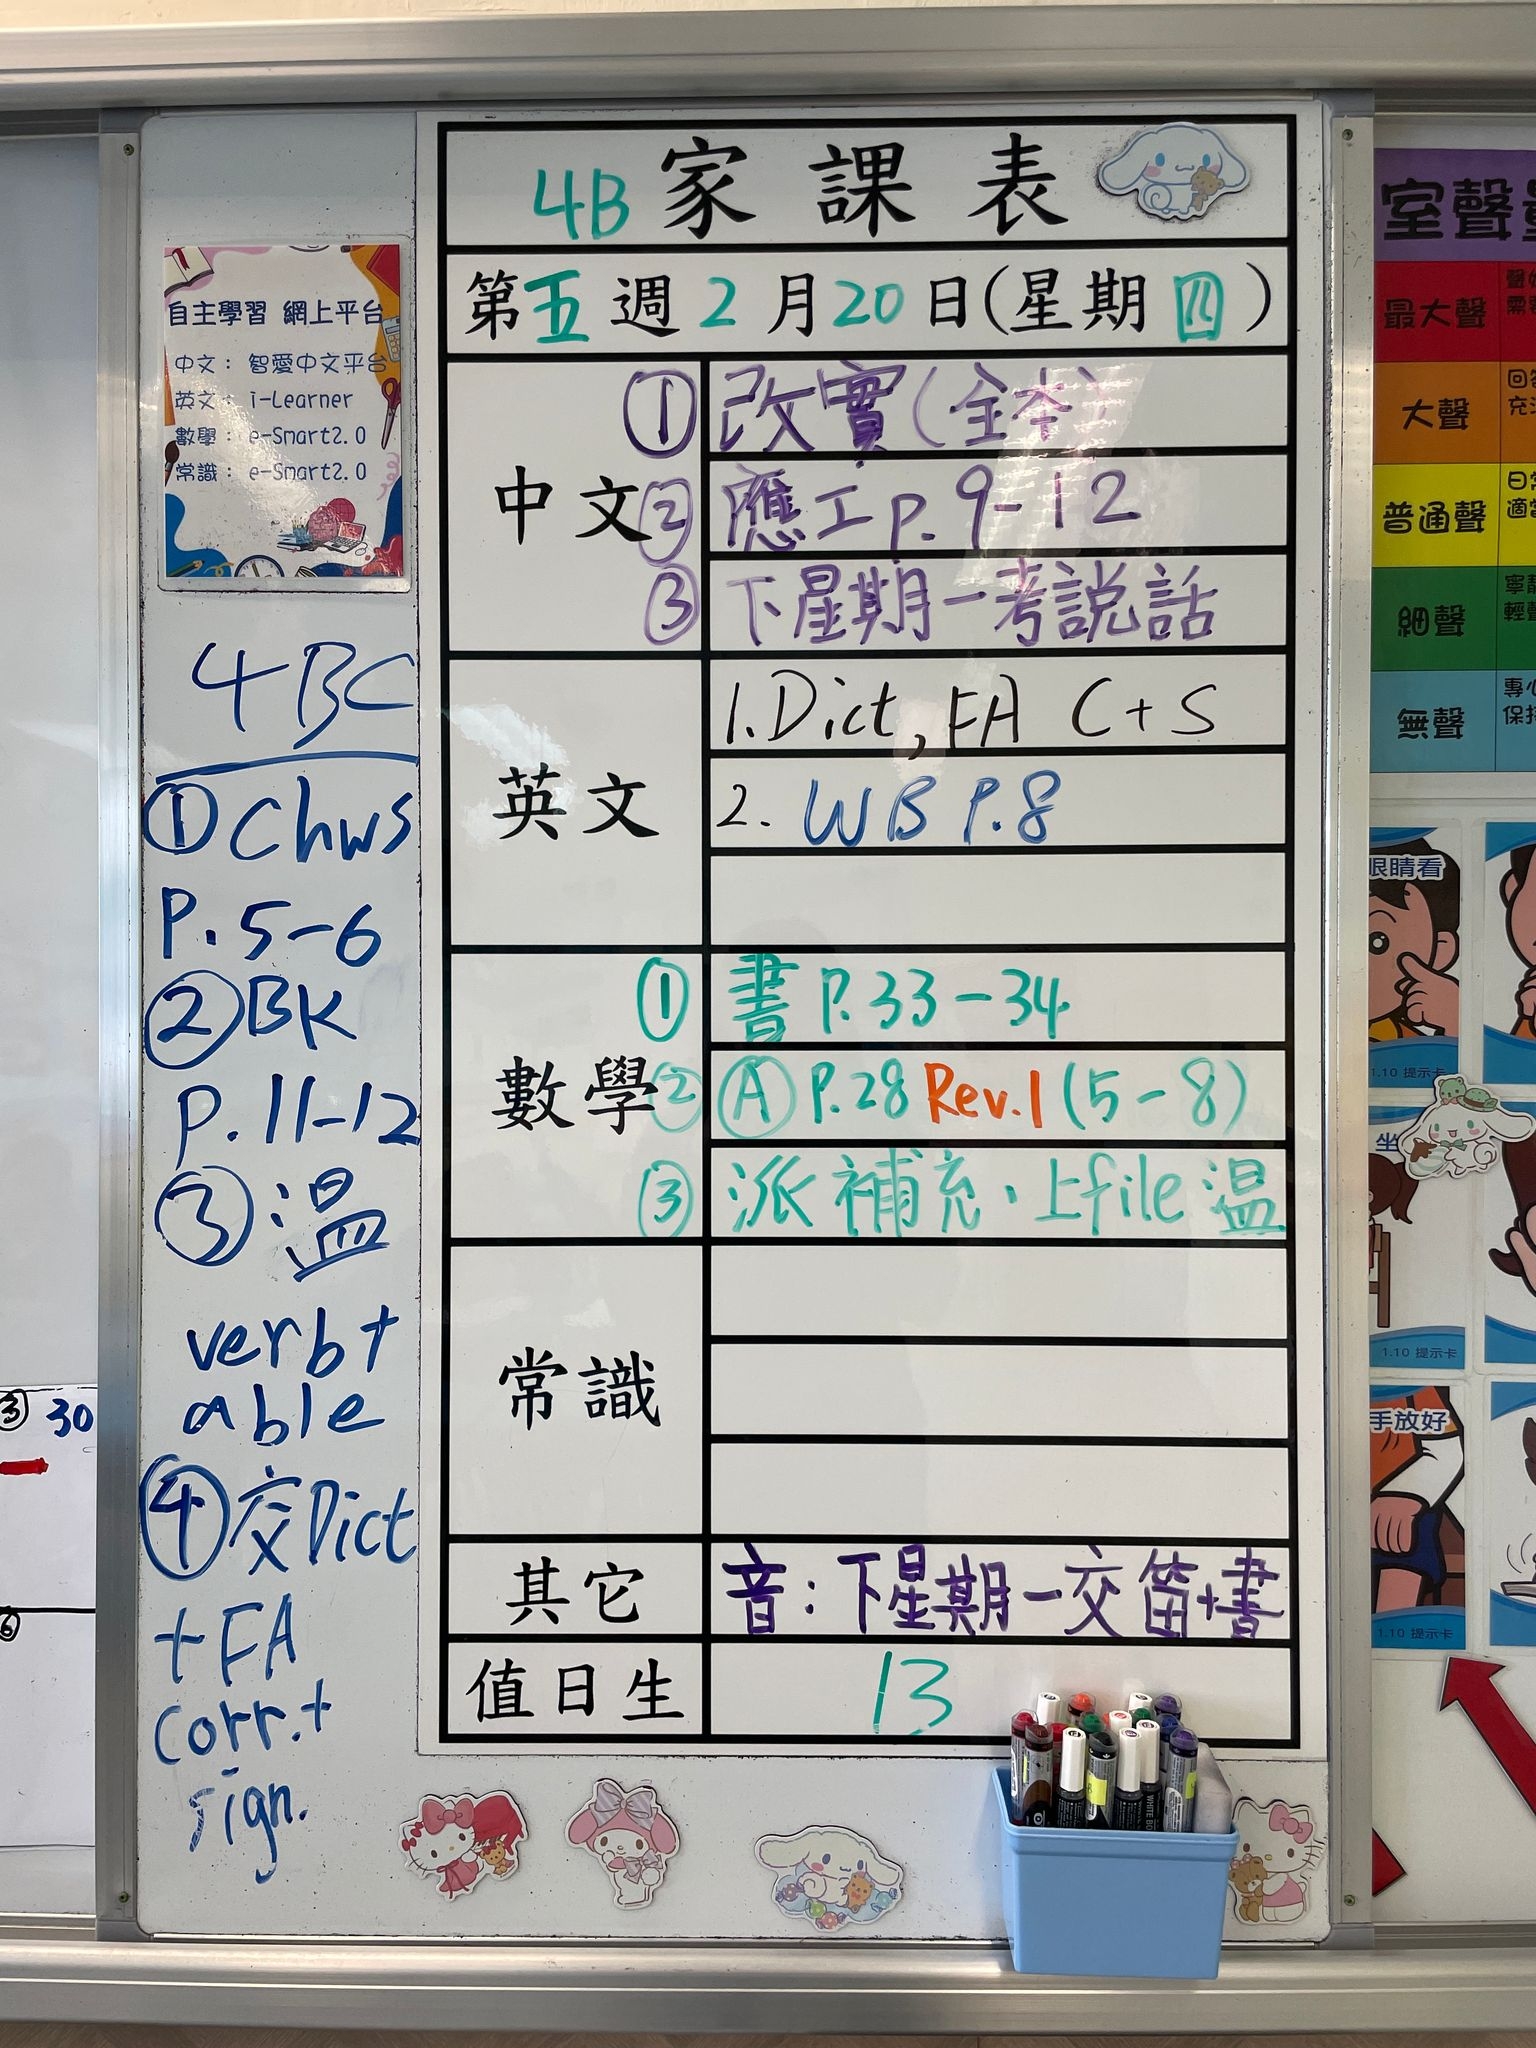 4B家課表
第五週2月20日(星期四)
中文
①改實(全本)
②應工p.9-12
③下星期一考説話
英文
1.Dict,FA C+S
2. WB P.8
數學
①書 P.33-34
②Ⓐ P.28 Rev.1 (5-8)
③派補充、上file溫
常識
其它
音:下星期一交笛+書
值日生
13
自主學習 網上平台
中文: 智愛中文平台
英文: i-Learner
數學: e-Smart2.0
常識: e-Smart2.0
4BC
①Chws
P.5-6
②BK
P.11-12
③溫
verb+
able
④交Dict
+FA
corr.+
sign.
③ 30
⑥
室聲
最大聲
大聲
回
充
普通聲
日
適
細聲
輕
無聲
專心
保持
眼睛看
1.10 提示卡
坐
1.10 提示卡
手放好
1.10 提示卡